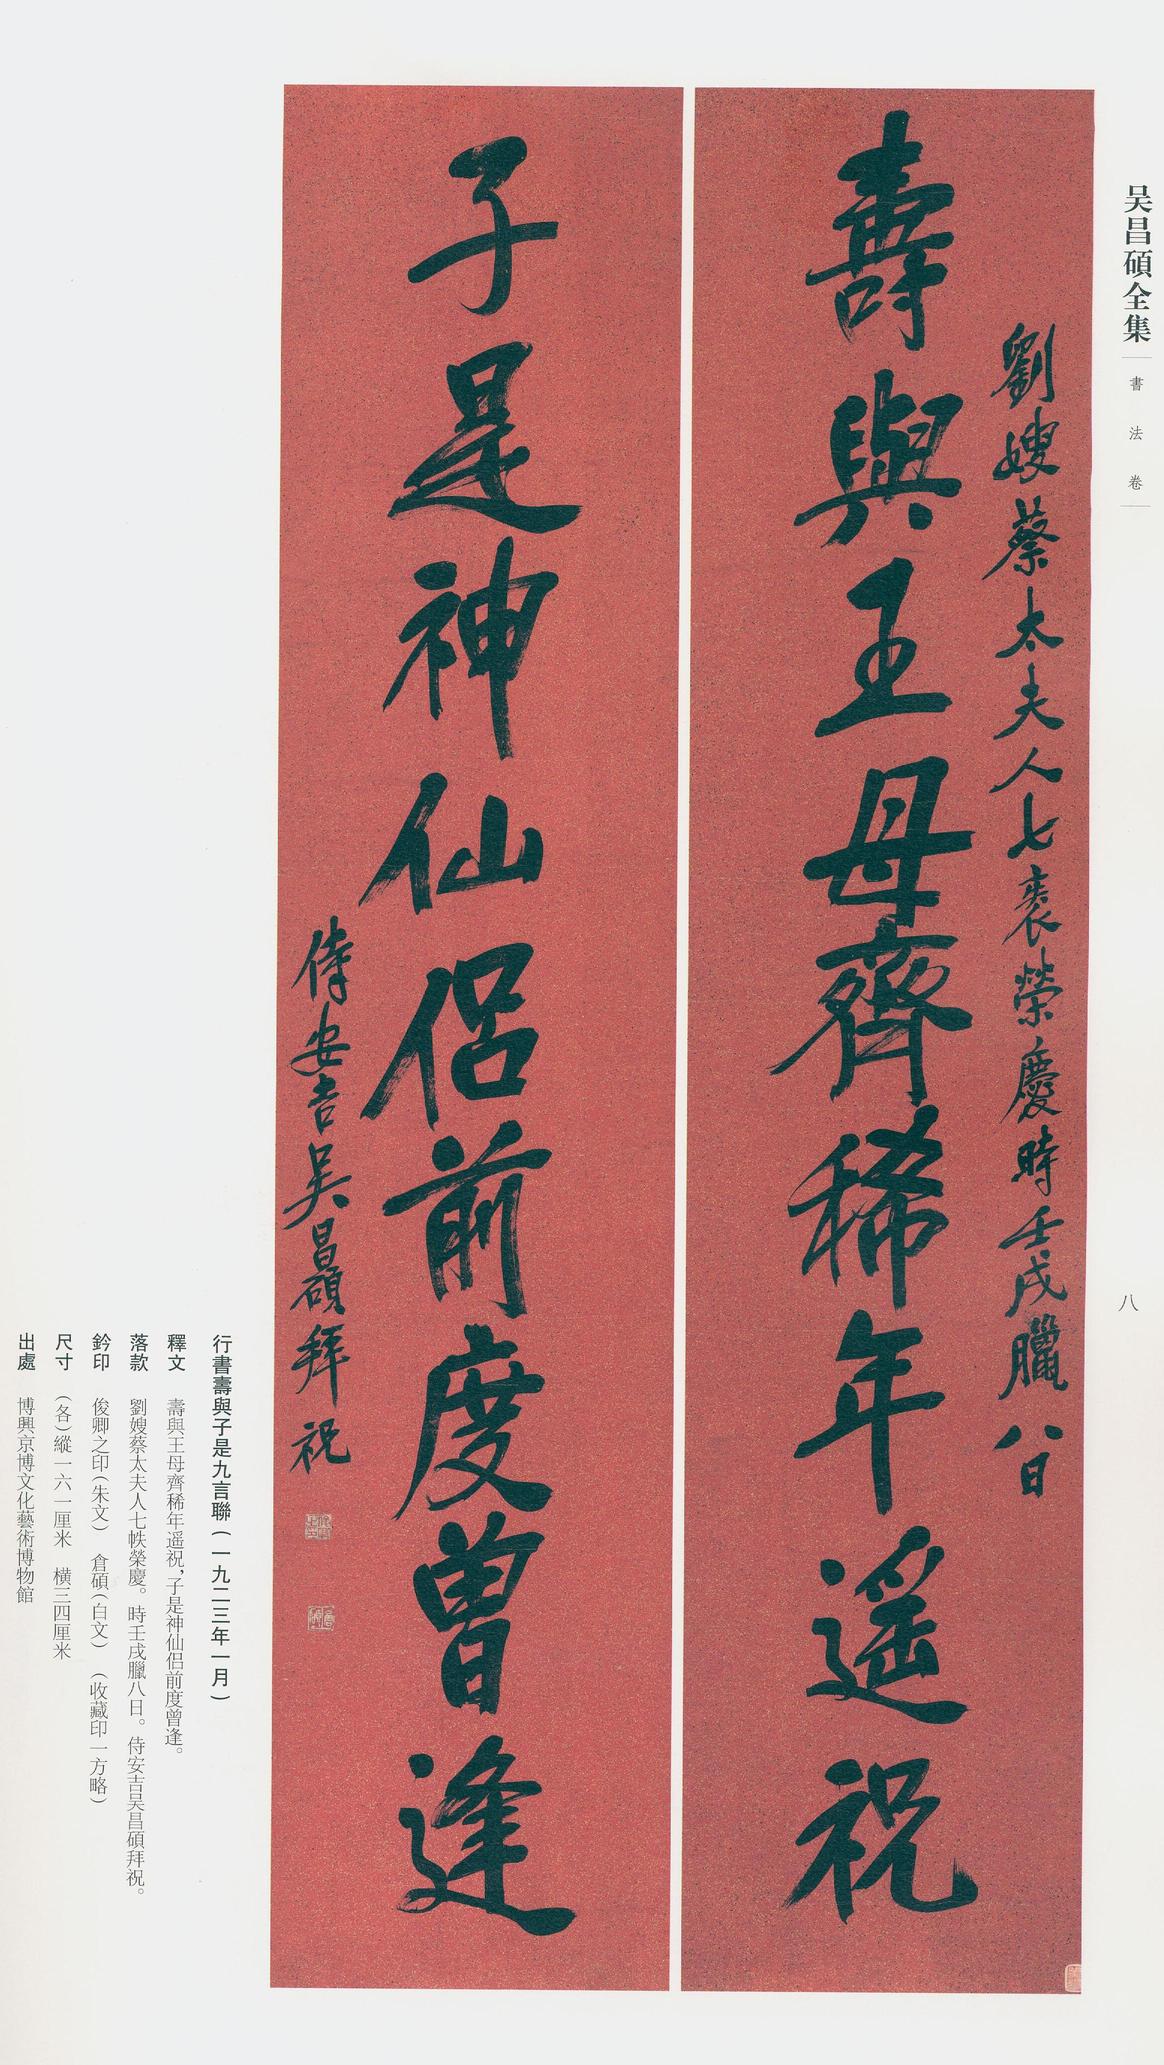 吴昌碩全集
書法卷
八
劉嫂蔡太夫人七袠榮慶時壬戌臘八日
壽與王母齊稀年遥祝
子是神仙侶前度曾逢
侍安吉吴昌碩拜祝
行書壽與子是九言聯（一九二三年一月）
釋文 壽與王母齊稀年遥祝，子是神仙侣前度曾逢。
落款 劉嫂蔡太夫人七帙榮慶。時壬戌臘八日。侍安吉吴昌碩拜祝。
鈐印 俊卿之印（朱文） 倉碩（白文） （收藏印一方略）
尺寸 （各）縱一六一厘米 横三四厘米
出處 博興京博文化藝術博物館